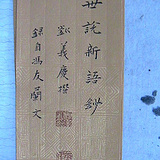 世說新語鈔
劉義慶撰
錄自馮友蘭文